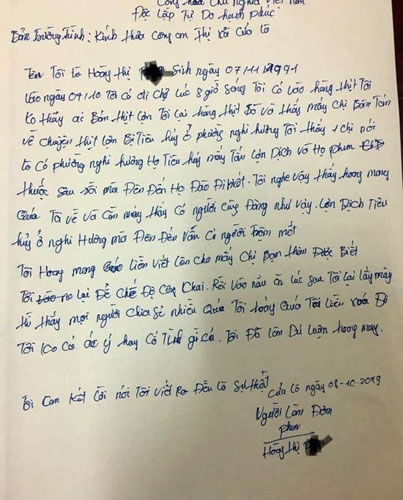 Cộng hòa Chủ Nghĩa Việt Nam
Độc Lập Tự Do hạnh phúc
Bản Tường trình: Kính thưa Công an Thị Xã Cửa Lò
Tên Tôi là Hoàng Thị Sinh ngày 07/11/1991
Vào ngày 07/10 Tôi có đi chợ lúc 8 giờ sáng Tôi có vào hàng thịt Tôi
ko thấy ai Bán thịt Lợn Tôi lại hàng thịt đó và thấy mấy chị Bàn Tán
về chuyện thịt lợn Bị Tiêu hủy ở phường nghi hương Tôi thấy 1 chị nói
là có phường nghi hương Họ Tiêu hủy mấy Tấn Lợn Dịch và Họ phun
thuốc sau rồi mà Đến Đến Họ Đào Đi hết. Tôi nghe vậy thấy hoang mang
Quá Tôi về và Còn mấy thấy Có người Cũng Đăng như vậy. Lợn Dịch Tiêu
hủy ở nghi Hương mà Đến Đến Vẫn Có người trộm mất
Tôi Hoang mang liền Viết Lên cho mấy Chị Bạn thêm Được Biết
Tôi no lại Để Chế Độ Con Chai. Rồi vào nấu ăn lúc sau Tôi lại lấy máy
thì thấy mọi người chia sẻ nhiều Quá Tôi hoảng Quá Tôi liền xoá Đi
Tôi ko Có ác ý hay Có Tính gì cả. Tôi Đã làm Dư Luận hoang mang.
Tôi Cam Kết lời nói Tôi Viết Ra Đều là Sự thật
Cửa lò ngày 08-10.2019
Người Làm Đơn
Hoàng Thị